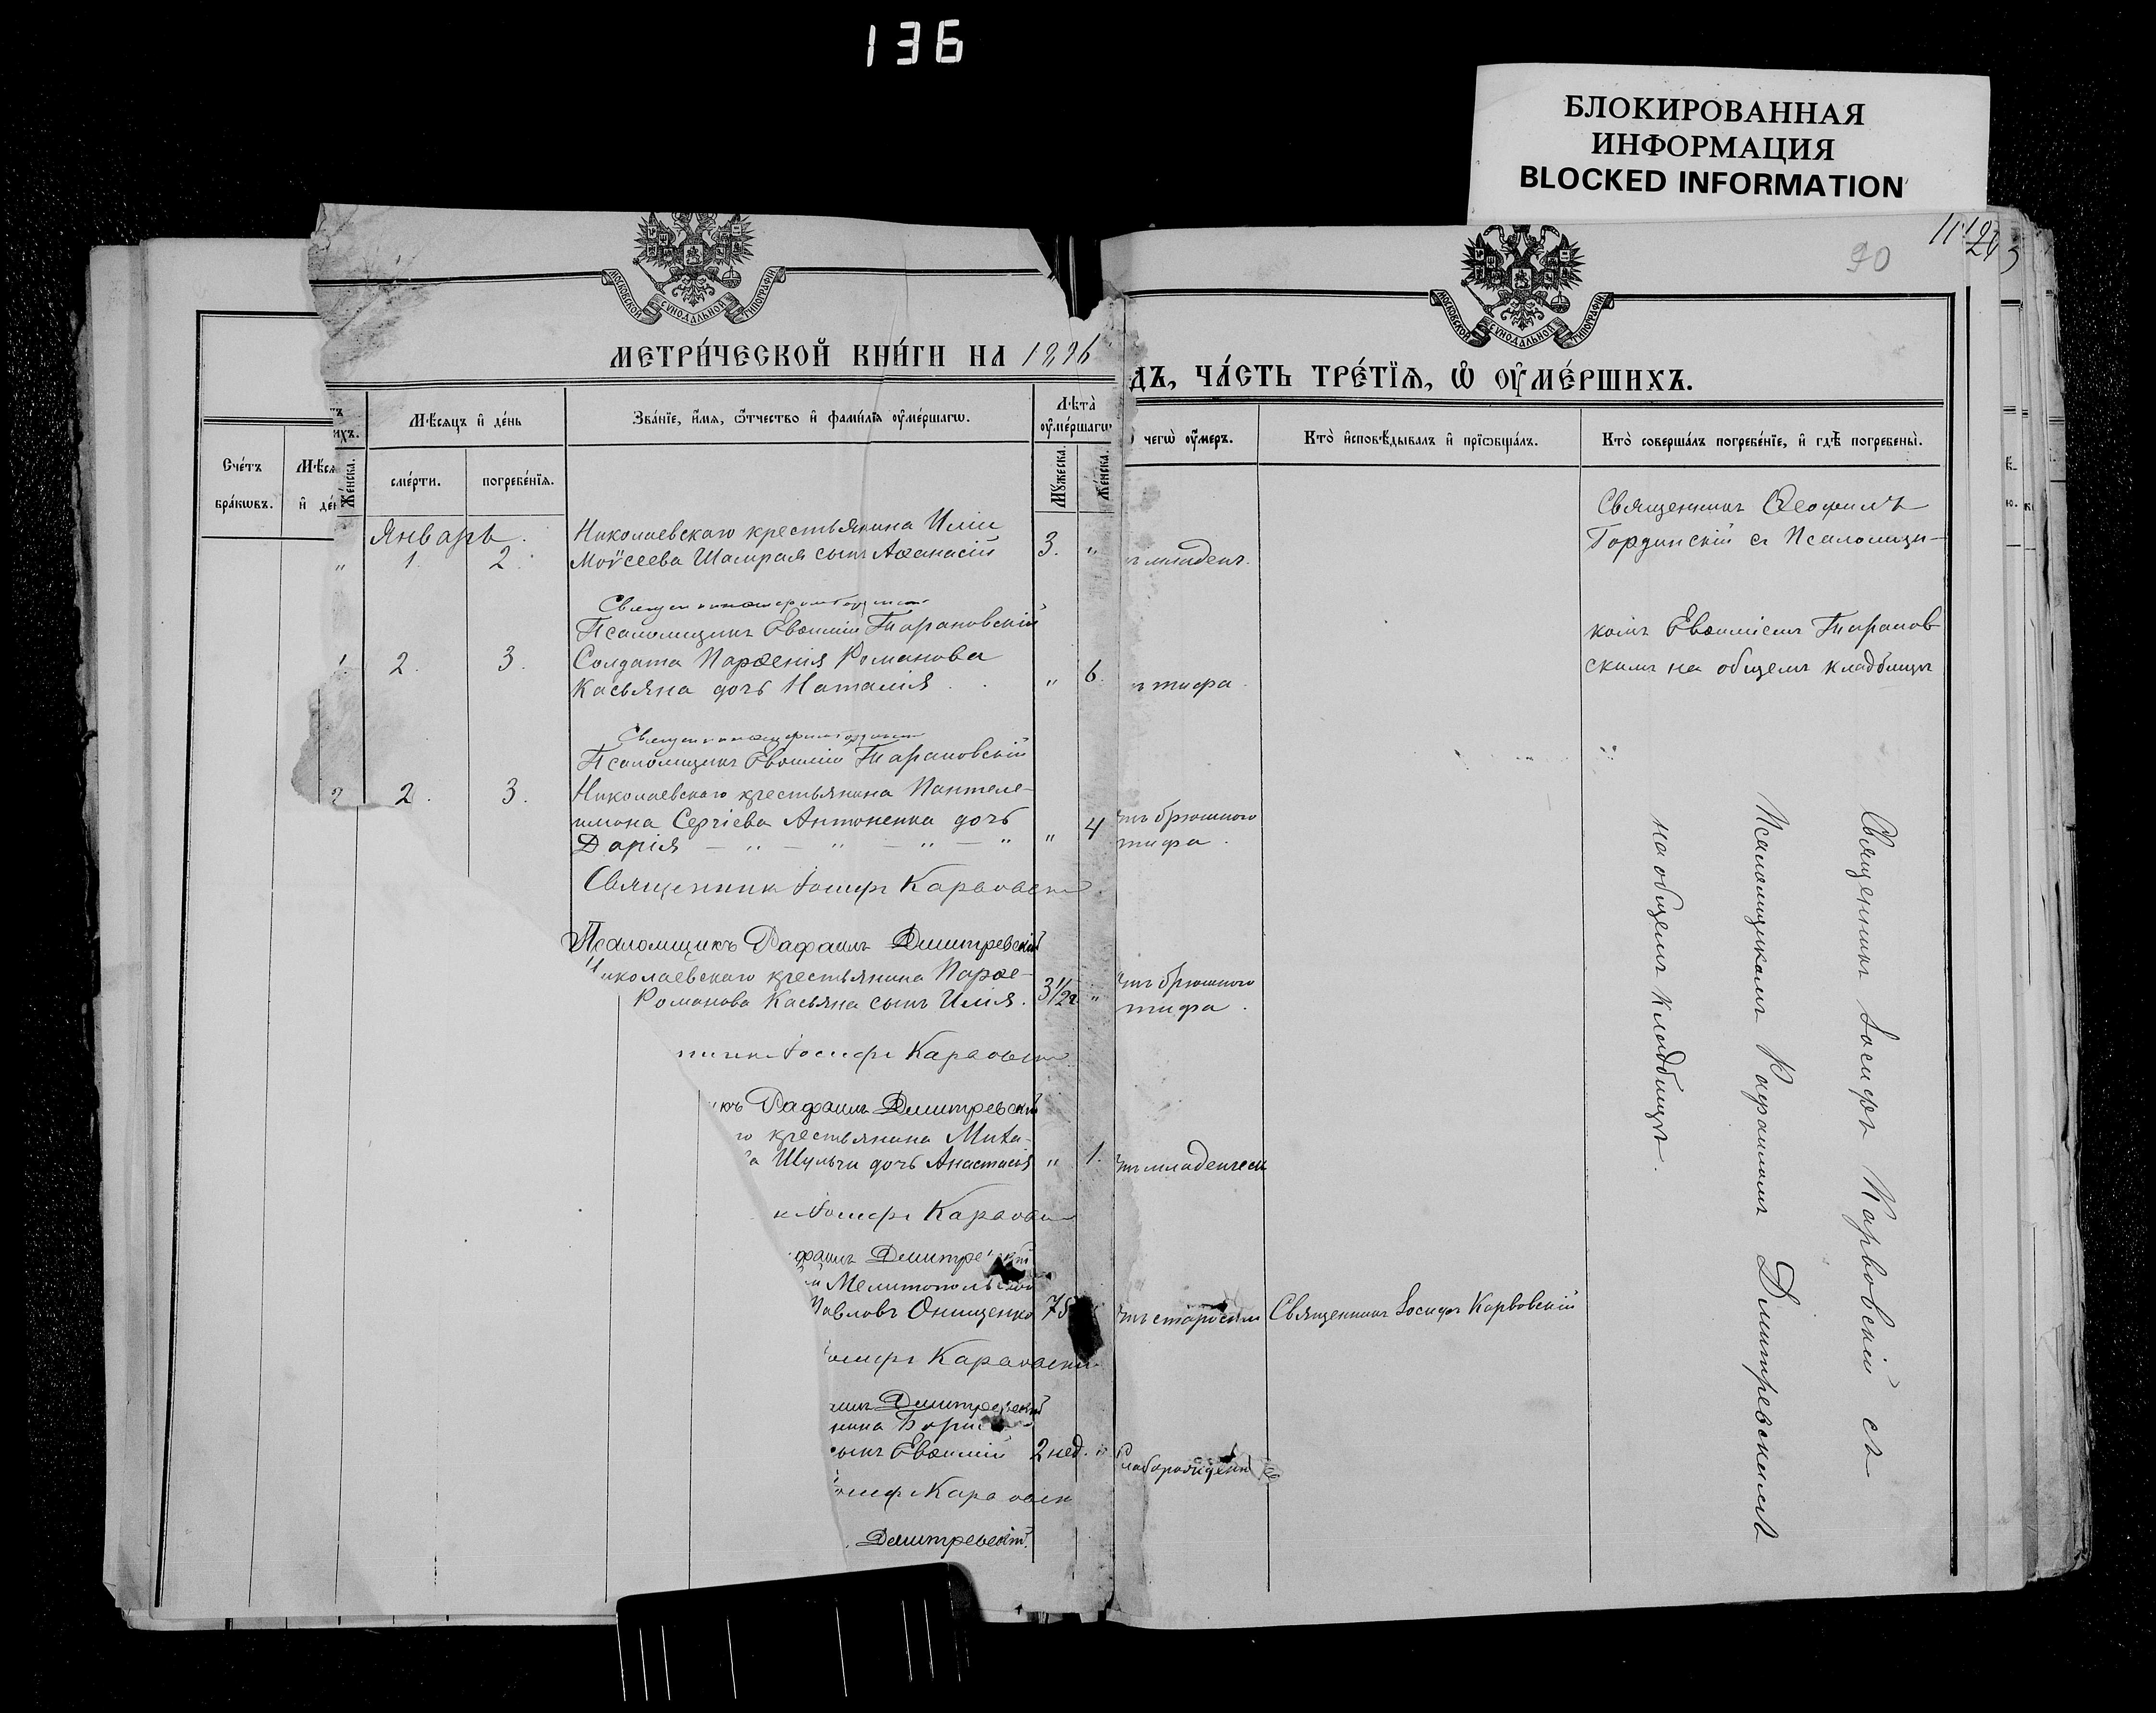 136
БЛОКИРОВАННАЯ
ИНФОРМАЦИЯ
BLOCKED INFORMATION
90
МОСКОВСКОЙ СѴНОДАЛЬНОЙ ТИПОГРАФІИ
МОСКОВСКОЙ СѴНОДАЛЬНОЙ ТИПОГРАФІИ
МЕТРИ́ЧЕСКОЙ КНИ́ГИ НА 1896
ДЪ, ЧА́СТЬ ТРЕ́ТЇѦ, Ѡ҆ ОУ҆МЕ́РШИХЪ.
Счéтъ
бра́кѡвъ.
Же́нска.
Мѣ́сѧцъ и҆ де́нь
сме́рти.
погребе́нїѧ.
Зва́нїе, и҆́мѧ, ѻ҆́тчество и҆ фами́лїѧ оу҆ме́ршагѡ.
Лѣ́та
оу҆ме́ршагѡ
Мꙋ́жеска.
Же́нска.
чегѡ̀ оу҆́меръ.
Кто̀ и҆сповѣ́дывалъ и҆ прїѡбща́лъ.
Кто̀ соверша́лъ погребе́нїе, и҆ гдѣ̀ погребены̀.
Январь.
" 1. 2. Николаевскаго крестьянина Иліи
Моѵсеева Шамрая сынъ Аѳанасій 3. " младенч.
Священникъ Ѳеофилъ
Гординскій съ Псаломщи-
комъ Евѳиміемъ Таранов
скимъ на общемъ кладбищѣ
Псаломщикъ Евѳимій Тарановскій
1. 2. 3. Солдата Парѳенія Романова
Касьяна дочь Наталія " 6. тифа.
Псаломщикъ Евѳимій Тарановскій
2 2. 3. Николаевскаго крестьянина Пантеле-
имона Сергіева Антоненка дочь
Дарія — " — " — " — " " 4 отъ брюшного
тифа.
Священникъ Іосифъ Карвовскій
Псаломщикъ Рафаилъ Димитревскій
Николаевскаго крестьянина Парѳе-
Романова Касьяна сынъ Илія. 3½ г. " отъ брюшного
тифа.
Іосифъ Карвовскій
Рафаилъ Димитревскій
крестьянина Миха-
Шульги дочь Анастасія " 1. отъ младенческ
Іосифъ Карвовскій
Димитревскій
Мелитопольской
Павловъ Онищенко 75 отъ старости Священникъ Іосифъ Карвовскій
Карвовскій
Димитревскій
сынъ Евѳимій 2 нед. " Слаборожденн
Карвовск
Димитревскій.
Священникъ Іосифъ Карвовскій съ
Псаломщикомъ Рафаиломъ Димитревскимъ
на общемъ кладбищѣ.